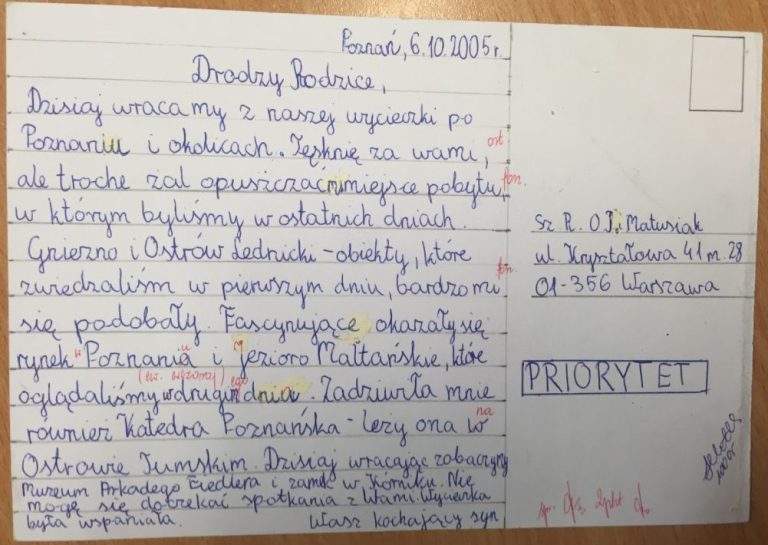 Poznań, 6.10.2005 r.
Drodzy Rodzice,
Dzisiaj wracamy z naszej wycieczki po
Poznaniu i okolicach. Tęsknię za wami, ort
ale troche żal opuszczać miejsce pobytu, fon.
w którym byliśmy w ostatnich dniach.
Gniezno i Ostrów Lednicki - obiekty, które
fon.
zwiedzaliśm w pierwszym dniu, bardzo mi
się podobały. Fascynujące okazały się
rynek w Poznaniu i Jezioro Maltańskie, które
(ew. wczoraj) ego
oglądaliśmy w drugim dniu. Zadziwiła mnie
na
rownież Katedra Poznańska - leży ona w
Ostrowie Tumskim. Dzisiaj wracając zobaczymy
Muzeum Arkadego Fiedlera i zamek w Kórniku. Nie
mogę się doczekać spotkania z Wami. Wycieczka
była wspaniała. Wasz kochający syn
Sz. P. O J. Matusiak
ul. Kryształowa 41 m. 28
01-356 Warszawa
PRIORYTET